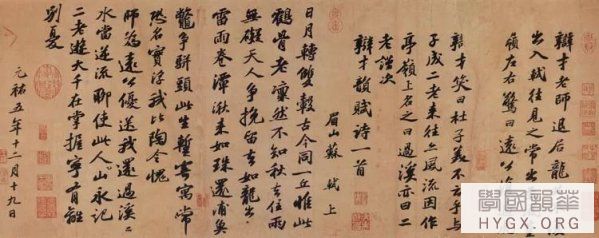 辯才老師退居龍
出入軾往見之常出
嶺左右驚曰遠公
辯才笑曰杜子美不云乎與
子成二老來往亦風流因作
亭嶺上名之曰過溪亦曰二
老謹次
辯才韻賦詩一首
眉山蘇軾上
日月轉雙轂古今同一丘惟此
鶴骨老凜然不知秋去住兩
無礙天人爭挽留去如龍出山
雷雨卷潭湫來如珠還浦魚
鱉爭駢頭此生暫寄寓常
恐名實浮我比陶令愧
師為遠公優送我還過溪溪
水當逆流聊使此人山永記
二老遊大千在掌握寧有離
別憂
元祐五年十二月十九日
學國韻華
HYGX.ORG